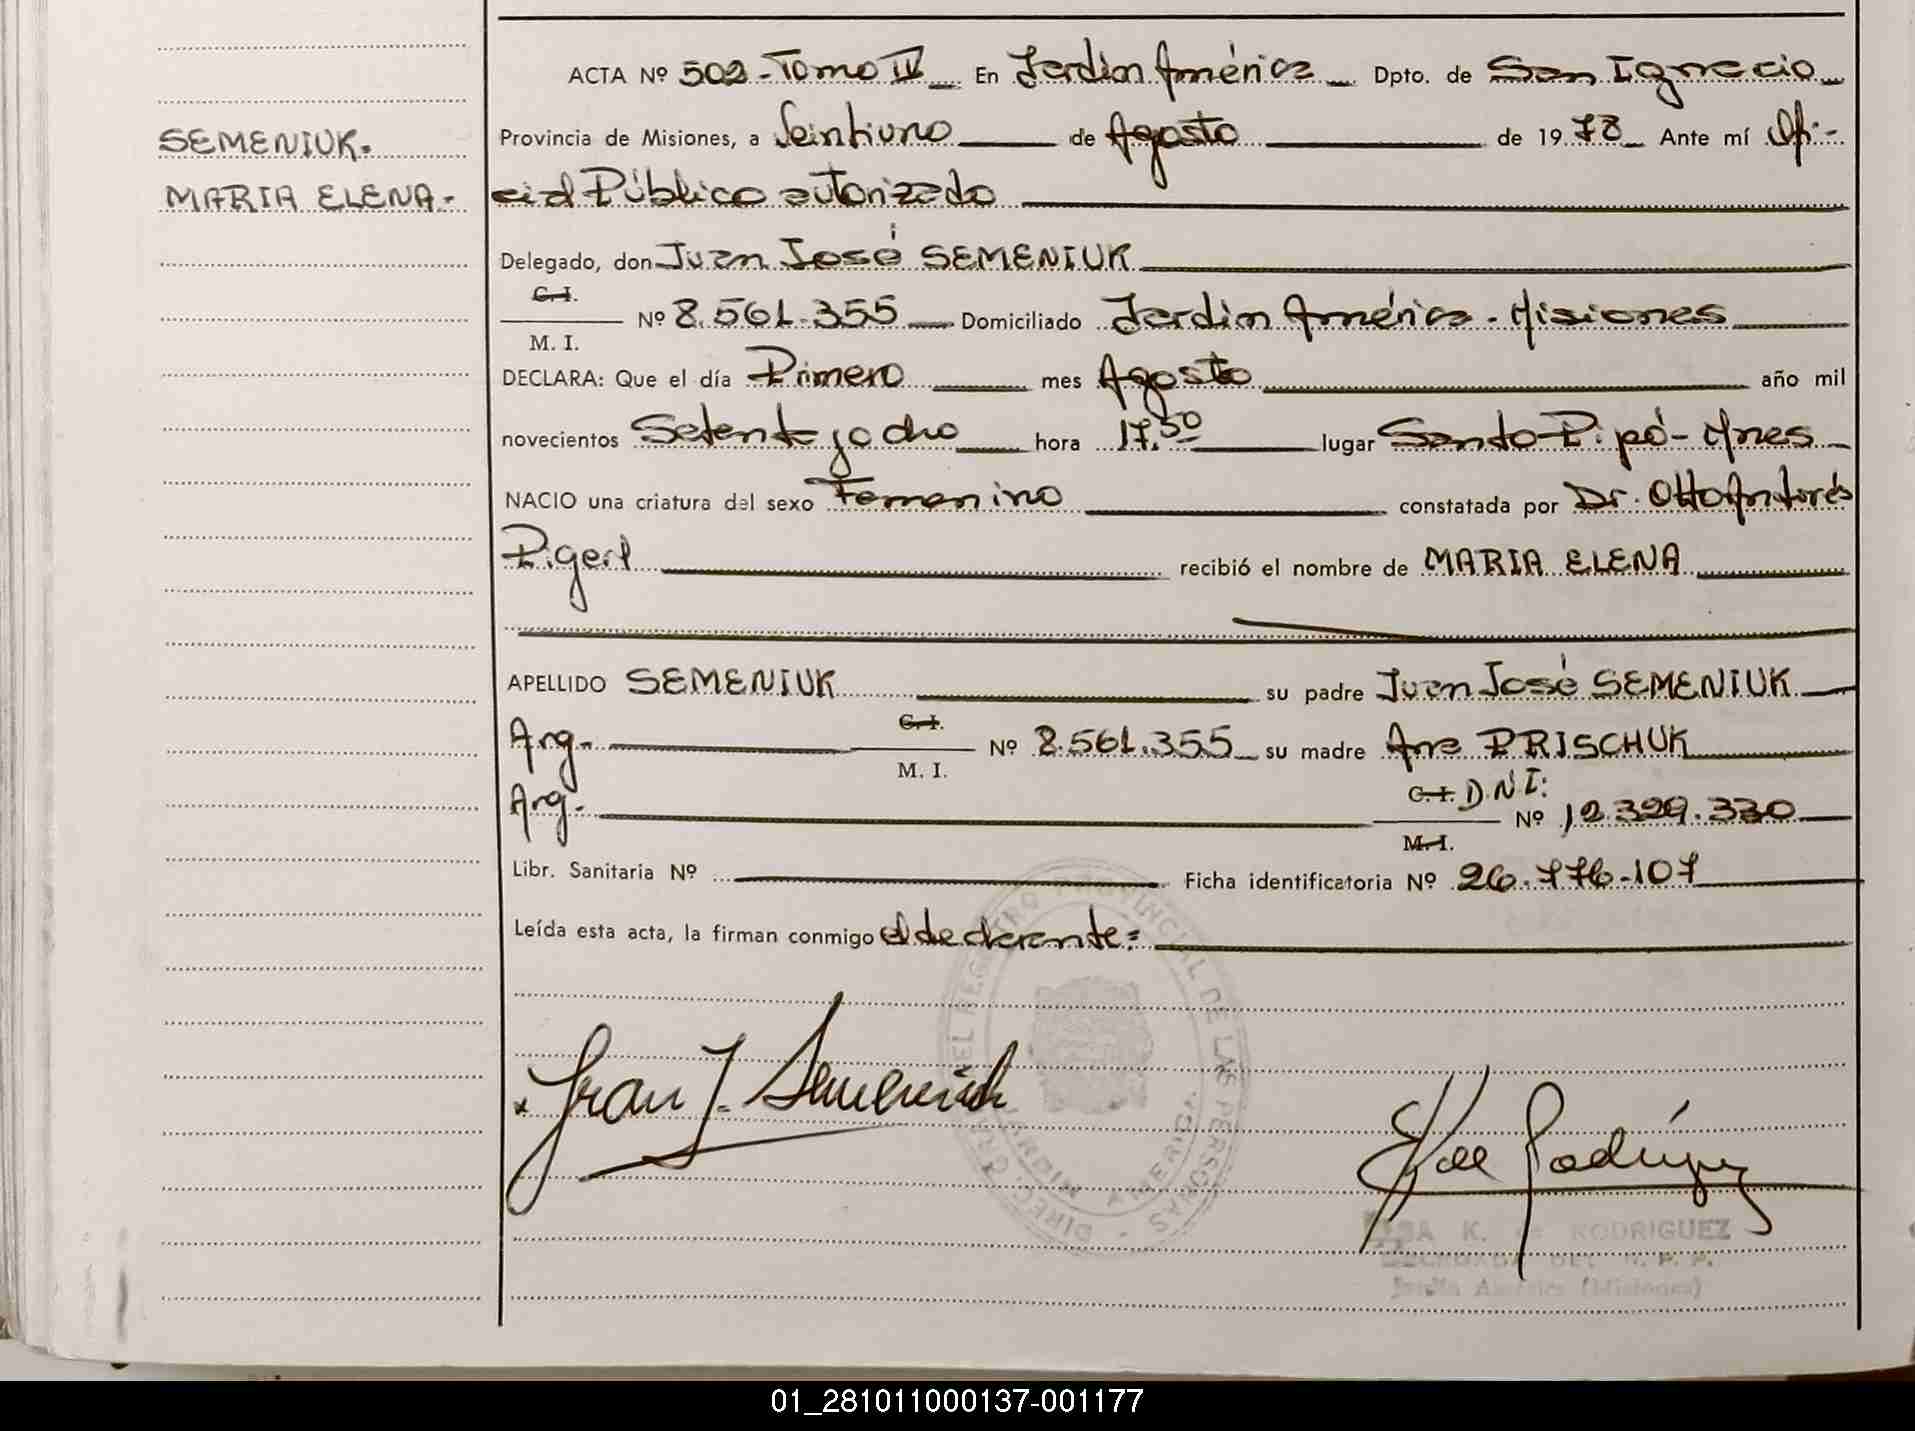 ACTA Nº 502 - Tomo IV En Jardín América Dpto. de San Ignacio
SEMENIUK.
Provincia de Misiones, a Veintiuno de Agosto de 1978 Ante mí Ofi-
MARIA ELENA-
cial Público autorizado
Delegado, don Juan José SEMENIUK
C. I.
Nº 8.561.355 Domiciliado Jardín América - Misiones
M. I.
DECLARA: Que el día Primero mes Agosto año mil
novecientos Setenta y ocho hora 17,50 lugar Santo Pipó - Mnes
NACIO una criatura del sexo Femenino constatada por Dr. Otto Andrés
recibió el nombre de MARIA ELENA
APELLIDO SEMENIUK su padre Juan José SEMENIUK
C. I.
Arg. Nº 8.561.355 su madre Ana PRISCHUK
M. I.
C. I. D.N.I:
Arg. Nº 12.329.330
M. I.
Libr. Sanitaria Nº Ficha identificatoria Nº 26.776.107
Leída esta acta, la firman conmigo el declarante:
DIREC. GRAL. DEL REGISTRO PROVINCIAL DE LAS PERSONAS
AMERICA
Juan J. Semeniuk
Rodríguez
K. de RODRIGUEZ
DELEGADA DEL R. P. P.
Jardín América (Misiones)
01_281011000137-001177